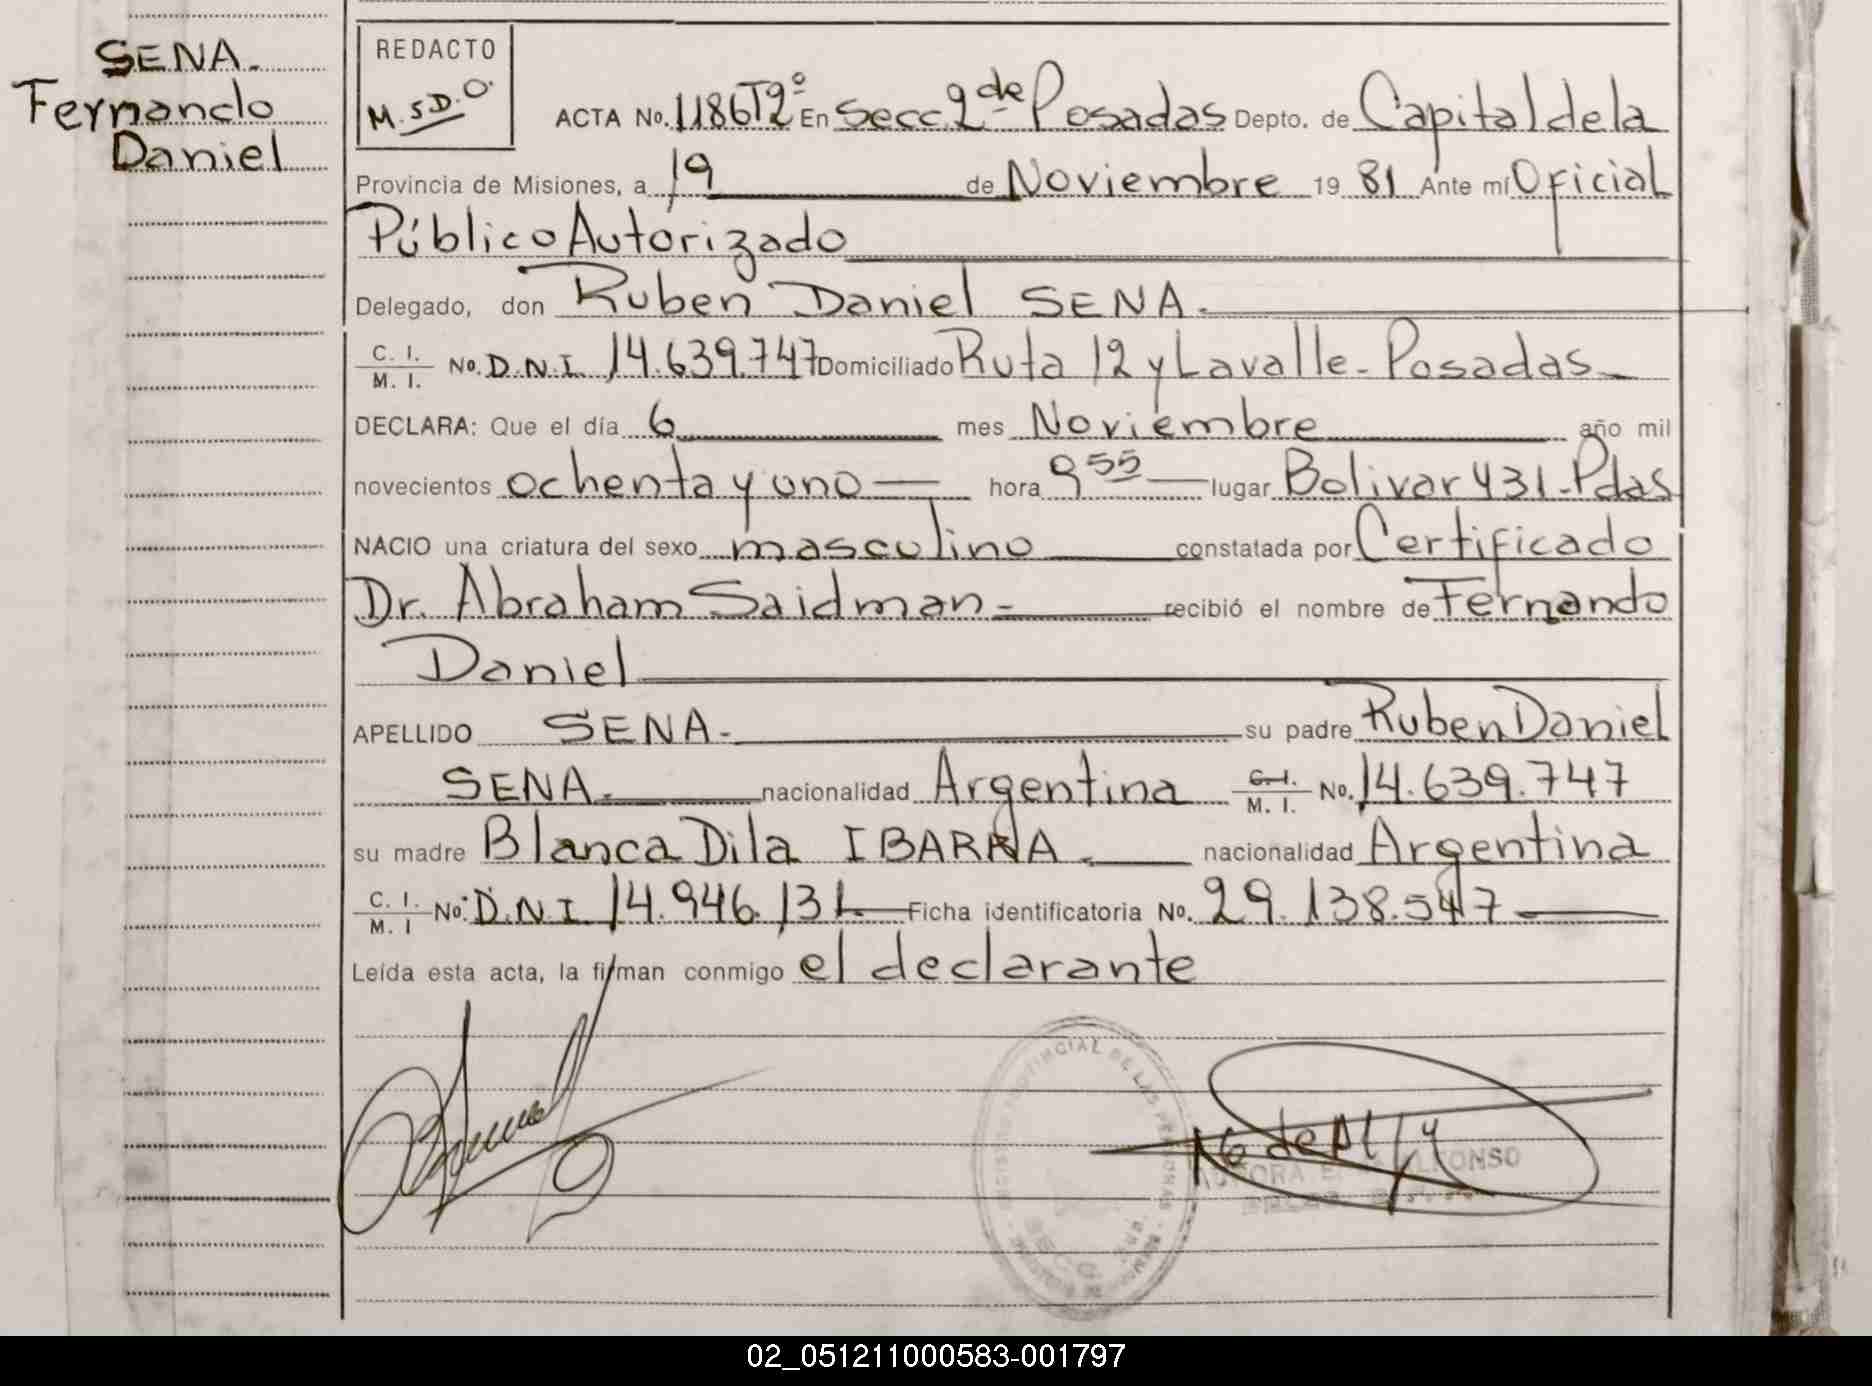 SENA.
Fernando
Daniel
REDACTO
M.S.D.O.
ACTA No. 1186T2º En Secc. 2 de Posadas Depto. de Capital de la
Provincia de Misiones, a 19 de Noviembre 19 81 Ante mí Oficial
Público Autorizado
Delegado, don Ruben Daniel SENA.
C. I. / M. I. No. D.N.I. 14.639.747 Domiciliado Ruta 12 y Lavalle - Posadas
DECLARA: Que el día 6 mes Noviembre año mil
novecientos ochenta y uno hora 9 55 lugar Bolivar 431 - Pdas
NACIO una criatura del sexo masculino constatada por Certificado
Dr. Abraham Saidman - recibió el nombre de Fernando
Daniel
APELLIDO SENA - su padre Ruben Daniel
SENA. nacionalidad Argentina C. I. / M. I. No. 14.639.747
su madre Blanca Dila IBARRA. nacionalidad Argentina
C. I. / M. I No. D.N.I 14.946.131 Ficha identificatoria No. 29.138.547
Leída esta acta, la firman conmigo el declarante
02_051211000583-001797